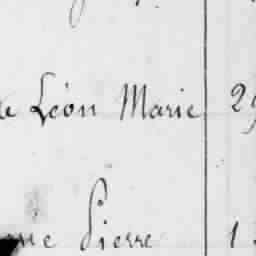 Léon Marie 29
Pierre 1